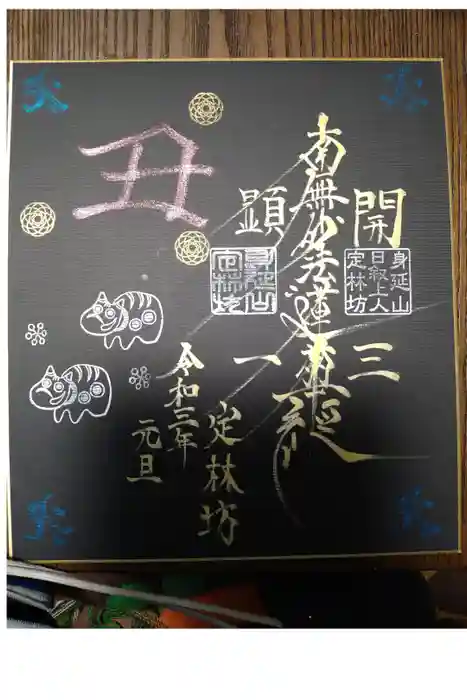 開三
身延山
日叙上人
定林坊
南無妙法蓮華経
顕一
身延山
定林坊
定林坊
令和三年
元旦
丑